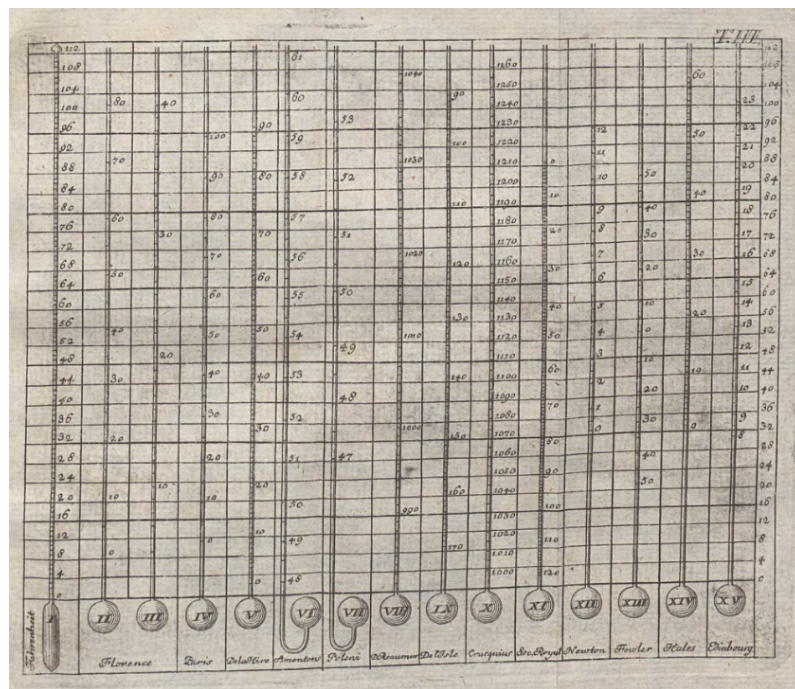 T. III.
112 108 104 100 96 92 88 84 80 76 72 68 64 60 56 52 48 44 40 36 32 28 24 20 16 12 8 4 0
80 70 60 50 40 30 20 10 0
40 30 20 10
100 90 80 70 60 50 40 30 20 10 0
90 80 70 60 50 40 30 20 10 0
61 60 59 58 57 56 55 54 53 52 51 50 49 48
53 52 51 50 49 48 47
1040 1030 1020 1010 1000 990
90 100 110 120 130 140 150 160 170
1260 1250 1240 1230 1220 1210 1200 1190 1180 1170 1160 1150 1140 1130 1120 1110 1100 1090 1080 1070 1060 1050 1040 1030 1020 1010 1000
0 10 20 30 40 50 60 70 80 90 100 110 120
12 11 10 9 8 7 6 5 4 3 2 1 0
50 40 30 20 10 0 10 20 30 40 50
60 50 40 30 20 10 0
23 22 21 20 19 18 17 16 15 14 13 12 11 10 9 8
112 108 104 100 96 92 88 84 80 76 72 68 64 60 56 52 48 44 40 36 32 28 24 20 16 12 8 4 0
I II III IV V VI VII VIII IX X XI XII XIII XIV XV
Fahrenheit Florence Paris Dela Hire Amontons Poleni D. Reaumur Del'Isle Crucquius Soc. Royal Newton Fowler Hales Edinbourg